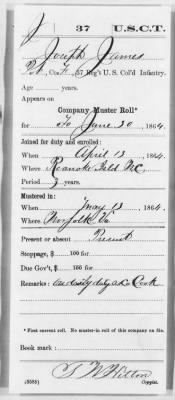 J | 37 | U.S.C.T.
Joseph James
Pvt, Co. F, 37 Reg't U. S. Col'd Infantry.
Age years.
Appears on
Company Muster Roll*
for To June 30, 1864.
Joined for duty and enrolled:
When April 13, 1864.
Where Roanoke Isld N.C.
Period 3 years.
Mustered in:
When May 13, 1864.
Where Norfolk Va
Present or absent Present
Stoppage, $ 100 for
Due Gov't, $ 100 for
Remarks: On daily duty as Co Cook
* First current roll. No muster-in roll of this company on file.
Book mark:
Copyist.